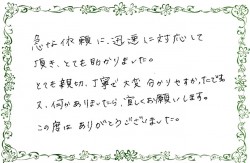 急な依頼に、迅速に対応して
頂き、とても助かりました。
とても親切、丁寧で大変分かりやすかったです。
又、何かありましたら、宜しくお願いします。
この度はありがとうございました。